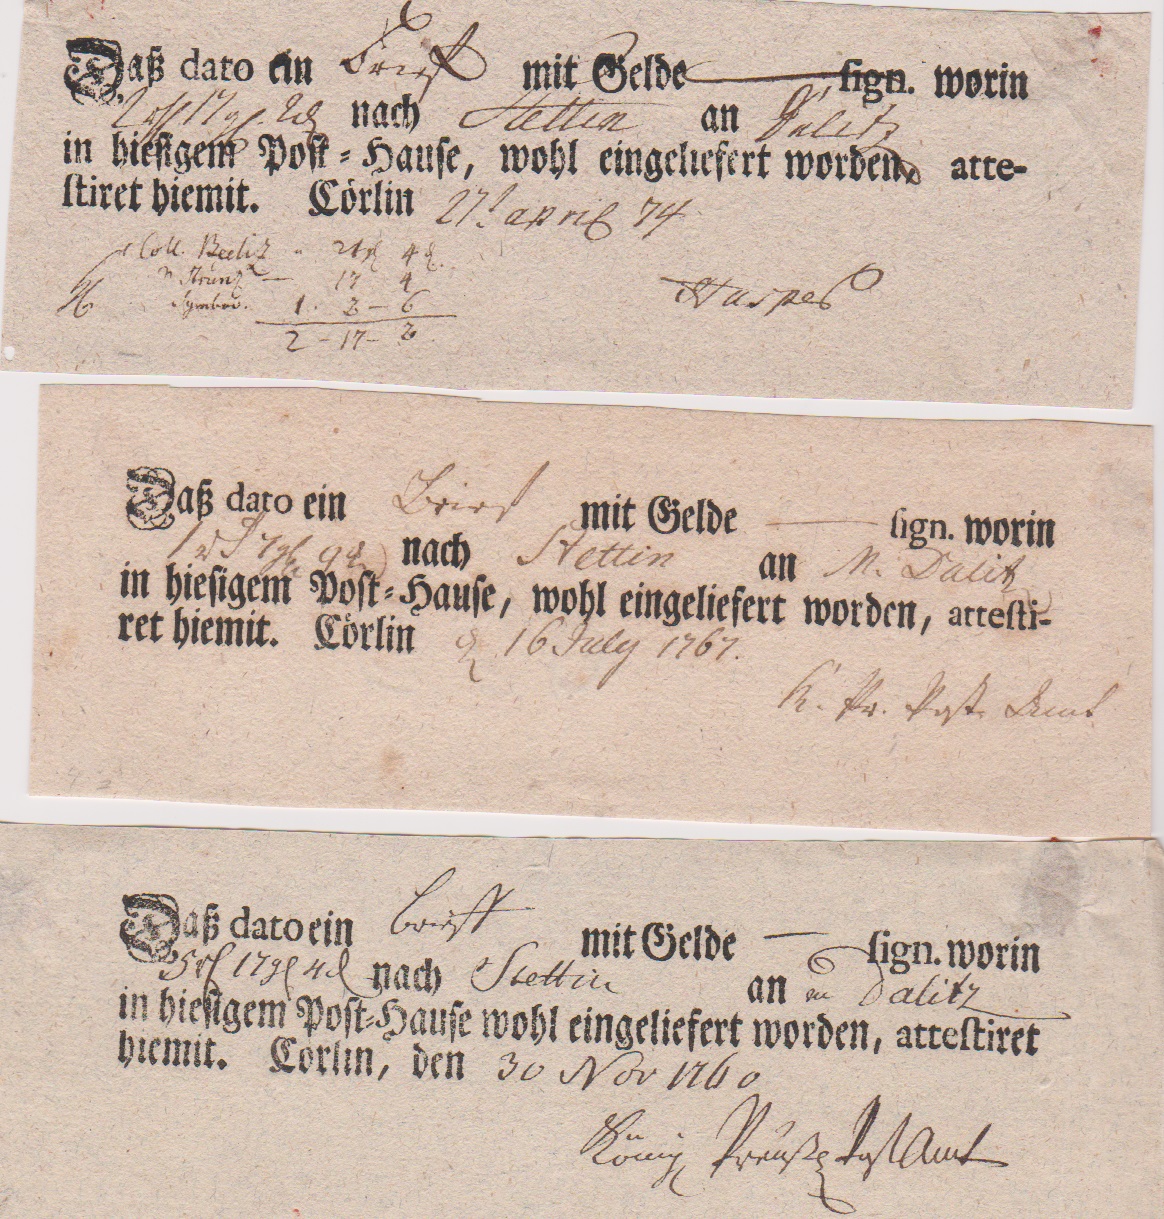 Daß dato ein Brieff mit Gelde sign. worin
2 rl 17 gl 2 d nach Stettin an Dalitz
in hiesigem Post-Hause, wohl eingeliefert worden, atte-
stiret hiemit. Cörlin 27t april 74
Coll. Beelitz 21 gl 4 d.
17 4
Harpes
1. 2 - 6
2 - 17 - 2
Daß dato ein Brief mit Gelde sign. worin
1 rl 7 gl. 9 d. nach Stettin an M. Dalitz
in hiesigem Post-Hause, wohl eingeliefert worden, attesti-
ret hiemit. Cörlin d 16 July 1767.
K. Pr. Post. Amt
Daß dato ein Brieff mit Gelde sign. worin
5 rl 17 gl 4 d nach Stettin an Dalitz
in hiesigem Post-Hause wohl eingeliefert worden, attestiret
hiemit. Cörlin, den 30 Nov 1760
König Preuß PostAmt